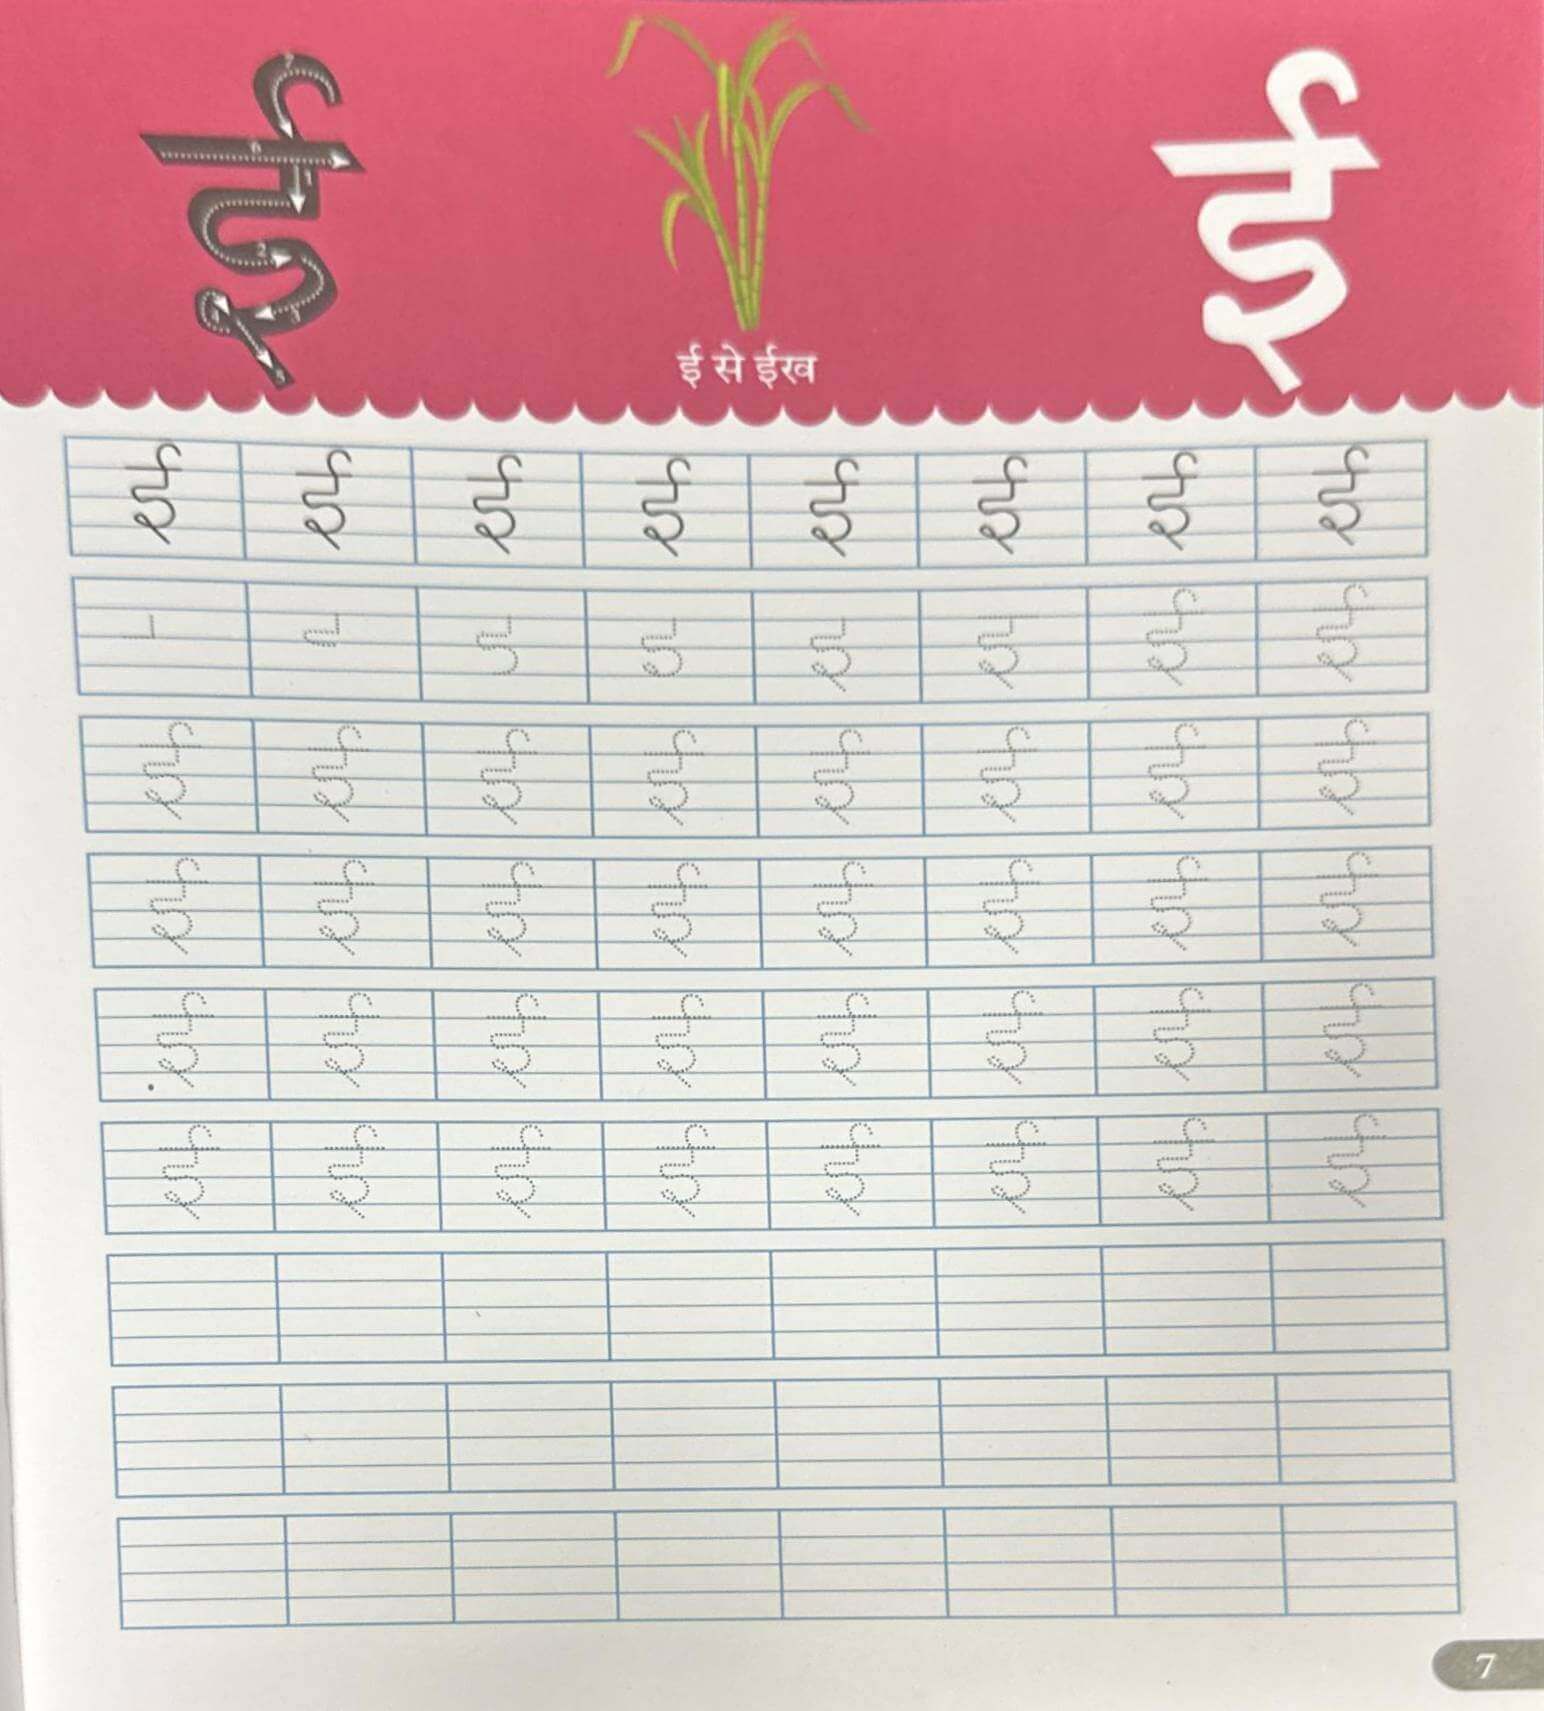 ई ई
ई से ईख
ई ई ई ई ई ई ई ई
इ ई ई
ई ई ई ई ई ई ई ई
ई ई ई ई ई ई ई ई
ई ई ई ई ई ई ई ई
ई ई ई ई ई ई ई ई
7